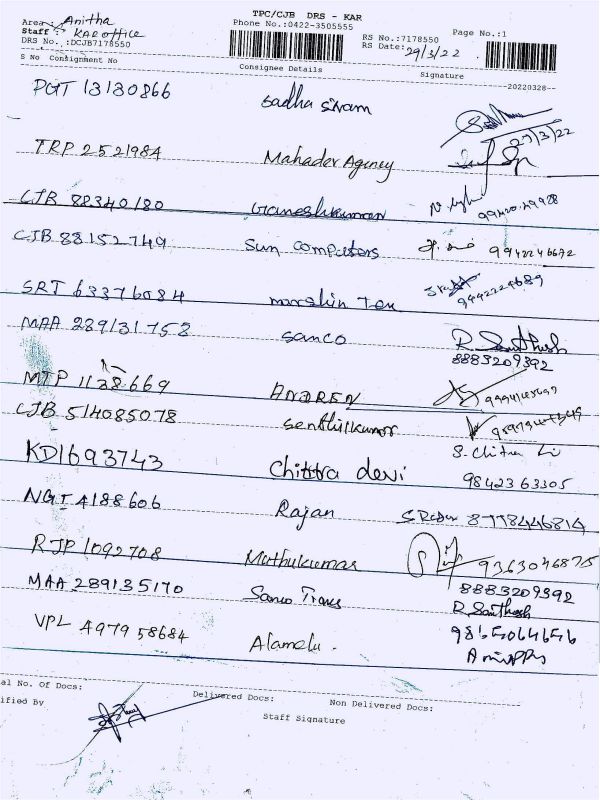 TPC/CJB DRS - KAR
Area : Anitha Phone No.:0422-3505555 Page No.:1
Staff : KAR office RS No.:7178550
DRS No. :DCJB7178550 RS Date: 29/3/22
S No Consignment No Consignee Details Signature
--20220328--
PGT 13130866 Sadha sivam
27/3/22
TRP 2521984 Mahadev Agency
CJB 88340180 Ganeshkumar
CJB 88152749 Sun Computers 9942246672
SRT 63376084
MAA 289131753 Sanco R. Santhosh
8883209392
MTP 1138669 ANDREN
CJB 514085078 Senthilkumar
KDI693743 Chittra devi S. Chitra
9842363305
NGT 4188606 Rajan 8778446814
RJP 1092708 Muthukumar 9363046875
MAA 289135170 Sanco Trans 8883209392
R. Santhosh
VPL 497958684 Alamelu. 9865064656
al No. Of Docs: Delivered Docs: Non Delivered Docs:
ified By Staff Signature